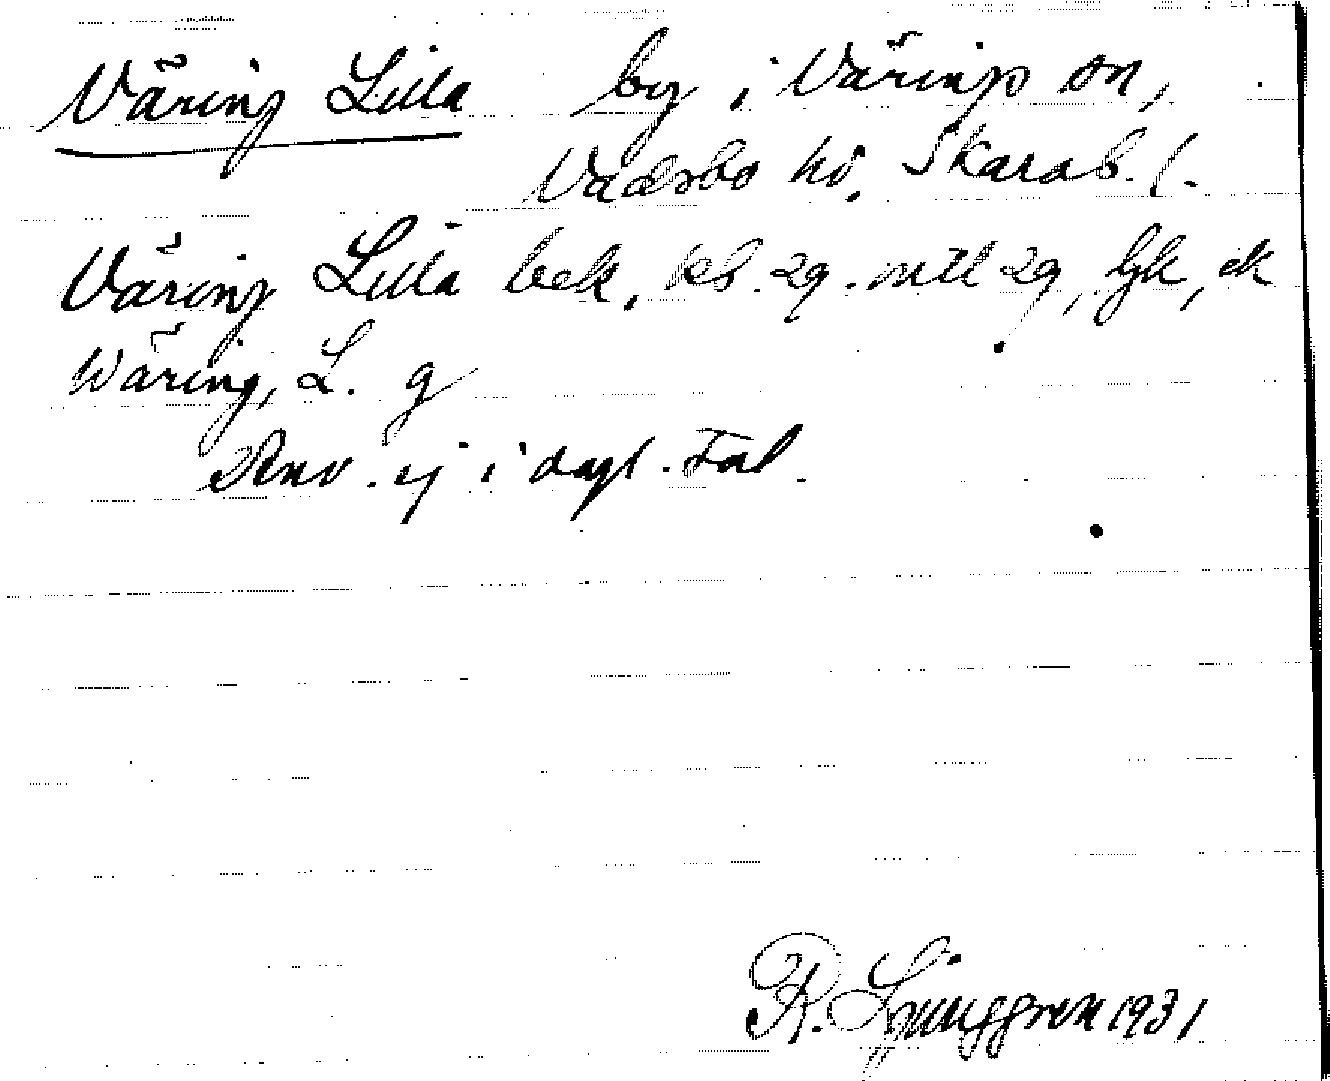 Väring Lilla by i Värings sn,
Vadsbo hd, Skarab. l.
Väring Lilla bek, kb. 29. mtl 29, hfk, ek
Wäring, L. g
Anv. ej i dagl. tal.
R. Ljunggren 1931